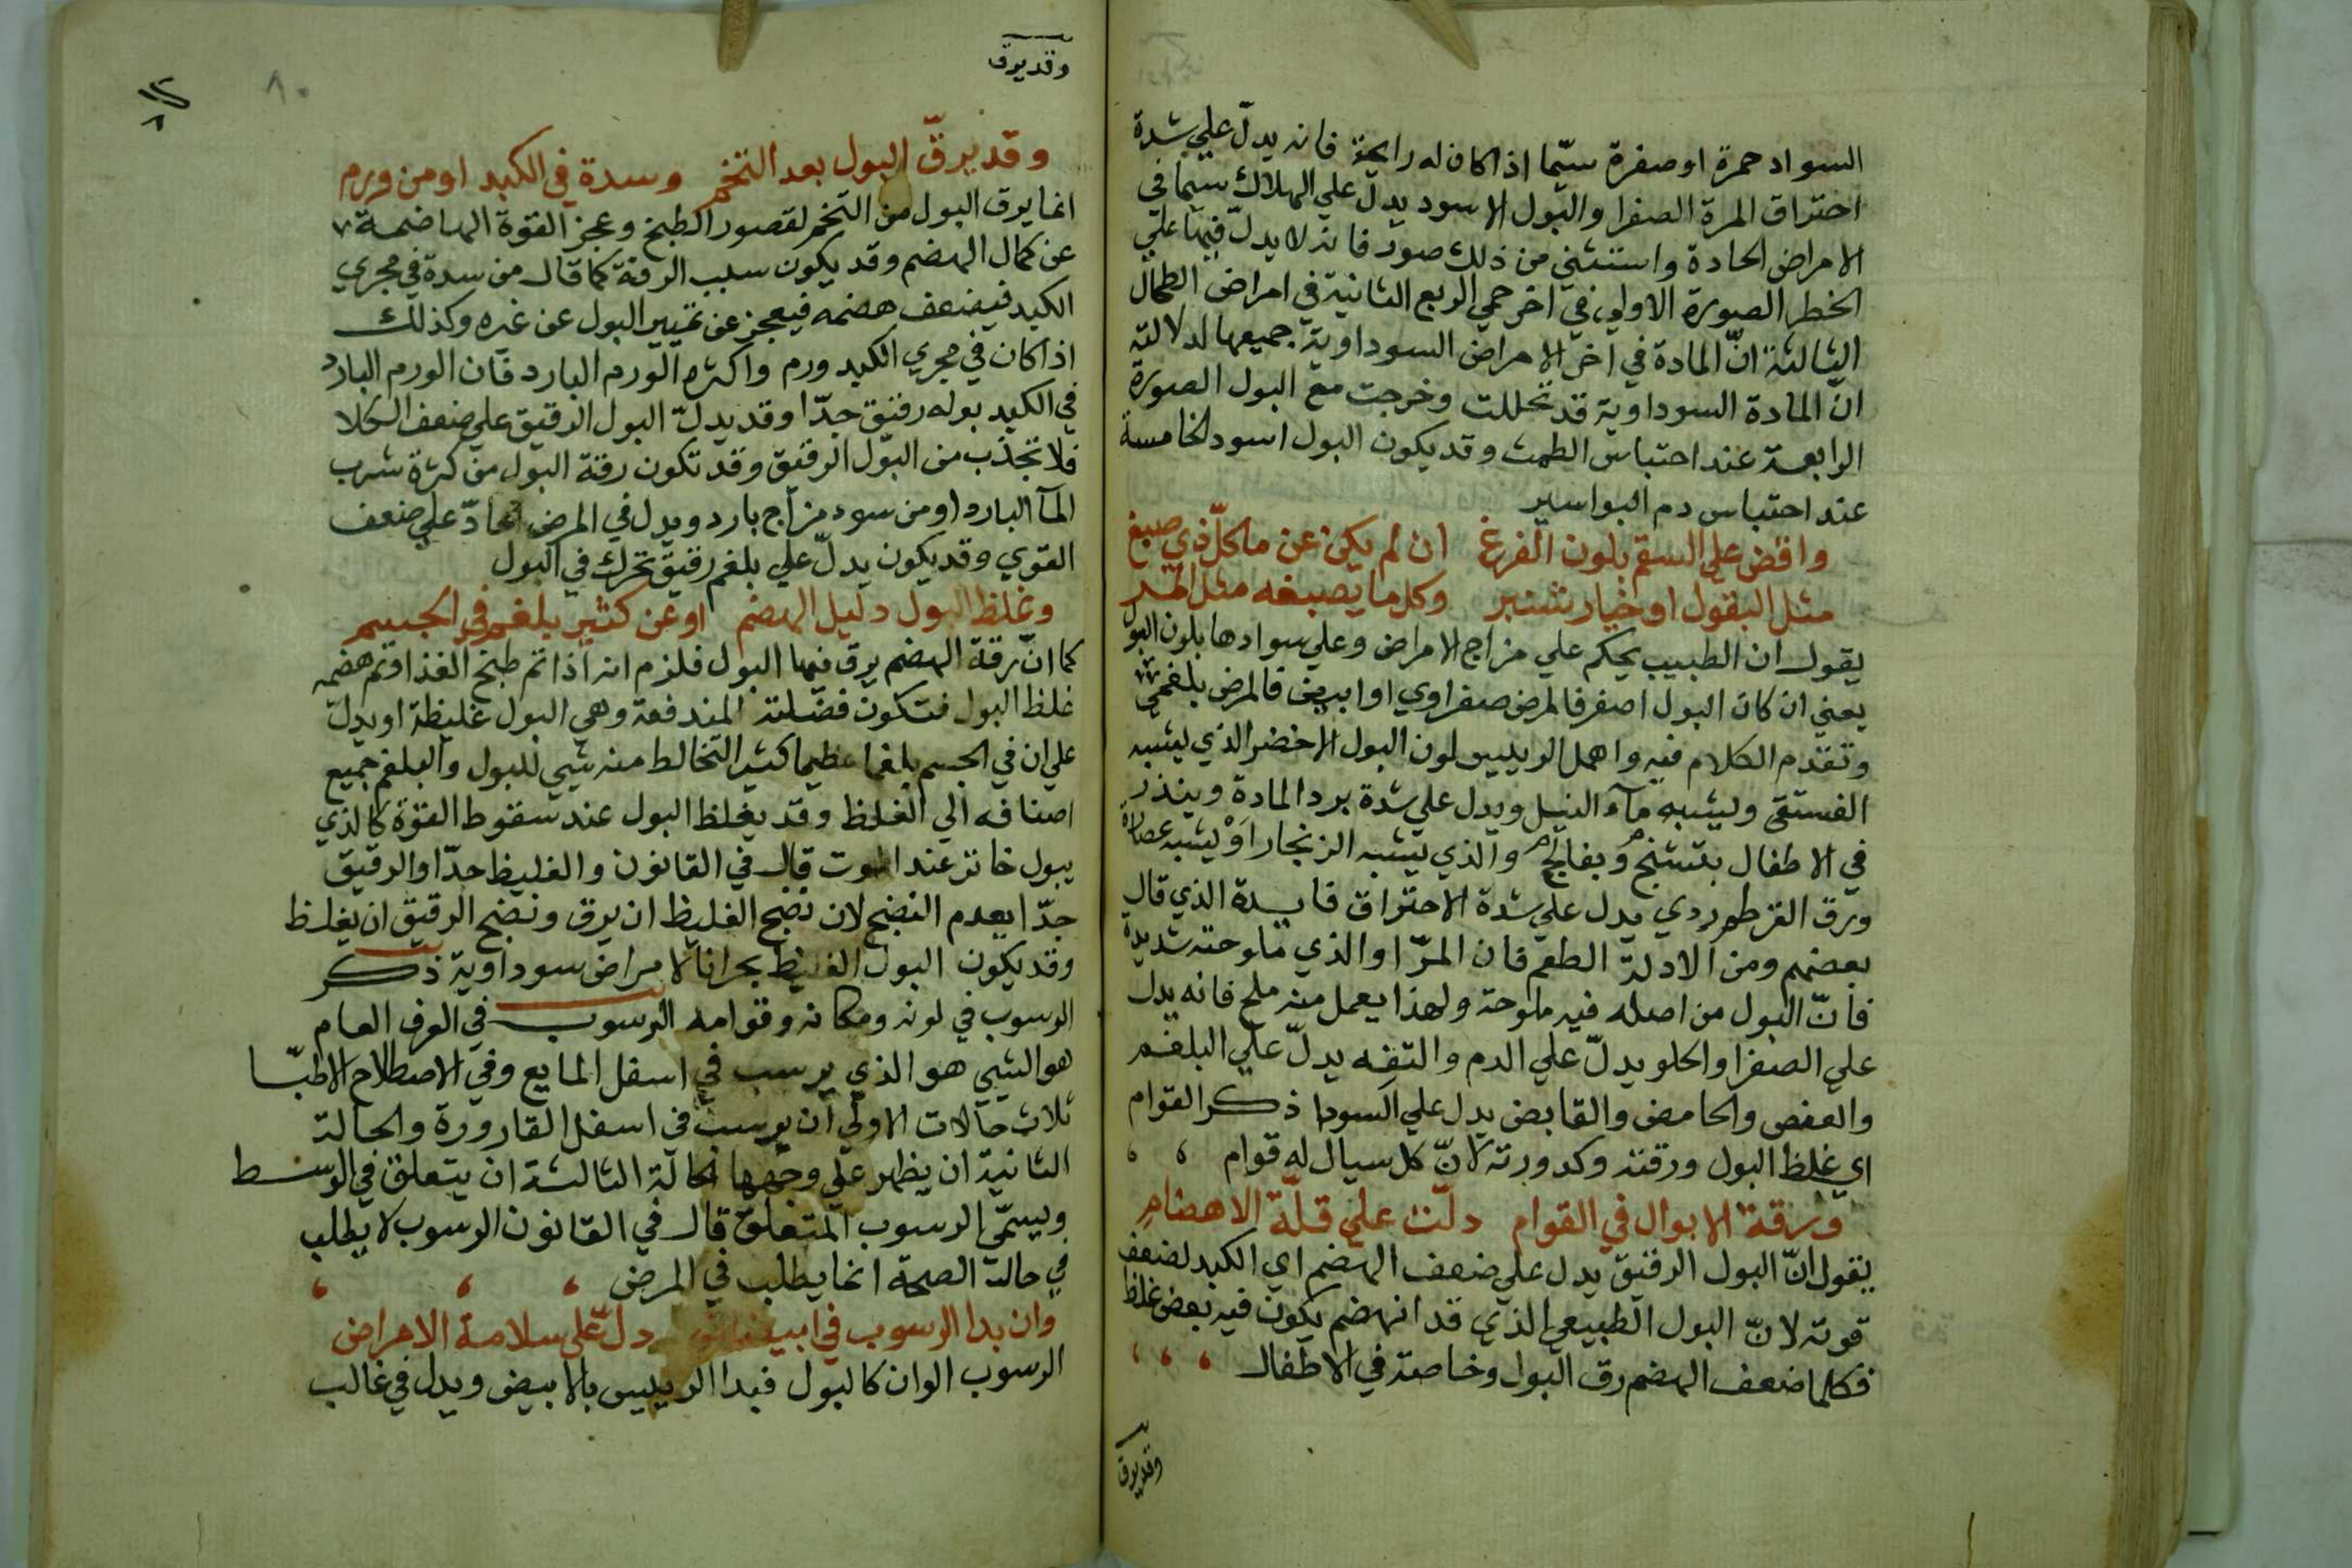 السواد حمرة او صفرة سيّما اذا كان له رايحة فانه يدلّ علي شدة
احتراق المرة الصفرا والبول الاسود يدلّ علي الهلاك سيما في
الامراض الحادة واستثني من ذلك صور فانه لا يدلّ فيها علي
الخطر الصورة الاولي في اخر حمي الربع الثانية في امراض الطحال
الثالثة انّ المادة في اخر الامراض السوداوية جميعها لدلالته
انّ المادة السوداوية قد تحللت وخرجت مع البول الصورة
الرابعة عند احتباس الطمث وقد يكون البول اسود الخامسة
عند احتباس دم البواسير
واقض علي السقم بلون الفرغ ان لم يكن عن ماكل ذي صبغ
مثل البقول او خيار شنبر وكل ما يصبغه مثل
يقول ان الطبيب يحكم علي مزاج الامراض وعلي سوادها بلون البول
يعني ان كان البول اصفر فالمرض صفراوي او ابيض فالمرض بلغمي
وتقدم الكلام فيه واهمل الرييس لون البول الاخضر الذي يشبه
الفستقي ويشبه مآء النيل ويدل علي شدة برد المادة وينذر
في الاطفال بتشنج وبفالج والذي يشبه الزنجار او يشبه عصارة
ورق القرطم ردي يدل علي شدة الاحتراق فايدة الذي قال
بعضهم ومن الادلة الطعم فان المرّ او الذي ملوحته شديدة
فانّ البول من اصله فيه ملوحة ولهذا يعمل منه ملح فانه يدل
علي الصفرا والحلو يدلّ علي الدم والتفه يدلّ علي البلغم
والعفص والحامض والقابض يدل علي السودا ذكر القوام
اي غلظ البول ورقته وكدورته لانّ كل سيال له قوام
ورقة الابوال في القوام دلّت علي قلّة الاهضام
يقول انّ البول الرقيق يدل علي ضعف الهضم اي الكبد لضعف
قوته لانّ البول الطبيعي الذي قد انهضم يكون فيه بعض غلظ
فكلما ضعف الهضم رق البول وخاصة في الاطفال
وقد يرق
وقد يرق
٨٠
وقد يرقّ البول بعد التخم وسدة في الكبد او من ورم
انما يرق البول من التخم لقصور الطبخ وعجز القوة الهاضمة
عن كمال الهضم وقد يكون سبب الرقة كما قال من سدة في مجري
الكبد فيضعف هضمه فيعجز عن تمييز البول عن غيره وكذلك
اذا كان في مجري الكبد ورم واكثره الورم البارد فان الورم البارد
في الكبد بوله رقيق جدّا وقد يدلّ البول الرقيق علي ضعف الكلا
فلا تجذب من البول الرقيق وقد تكون رقة البول من كثرة شرب
المآ البارد او من سوء مزاج بارد ويدل في المرض الحادّ علي ضعف
القوي وقد يكون يدلّ علي بلغم رقيق تحرك في البول
وغلظ البول دليل الهضم او عن كثير بلغم في الجسم
كما انّ رقة الهضم يرق فيها البول فلزم انه اذا تم طبخ الغذا وتم هضمه
غلظ البول فتكون فضلته المندفعة وهي البول غليظة او يدلّ
علي ان في الجسم بلغما عظيما كثير التخالط منه شيي للبول والبلغم جميع
اصنافه الي الغلظ وقد يغلظ البول عند سقوط القوة كالذي
يبول خاثر عند الموت قال في القانون والغليظ جدّا والرقيق
جدّا بعدم النضج لان نضج الغليظ ان يرق ونضج الرقيق ان يغلظ
وقد يكون البول الغليظ بحرانا لامراض سوداوية ذكر
الرسوب في لونه ومكانه وقوامه الرسوب في العرف العام
هو الشيي هو الذي يرسب في اسفل المايع وفي الاصطلاح الاطبّا
ثلاث حالات الاولي ان يرسب في اسفل القارورة والحالة
الثانية ان يظهر علي وجهها الحالة الثالثة ان يتعلق في الوسط
ويسمّي الرسوب المتعلق قال في القانون الرسوب لا يطلب
في حالة الصحة انما يطلب في المرض
وان بدا الرسوب في ابيضاض دلّ علي سلامة الامراض
الرسوب الوان كالبول فبدا الرييس بالابيض ويدل في غالب